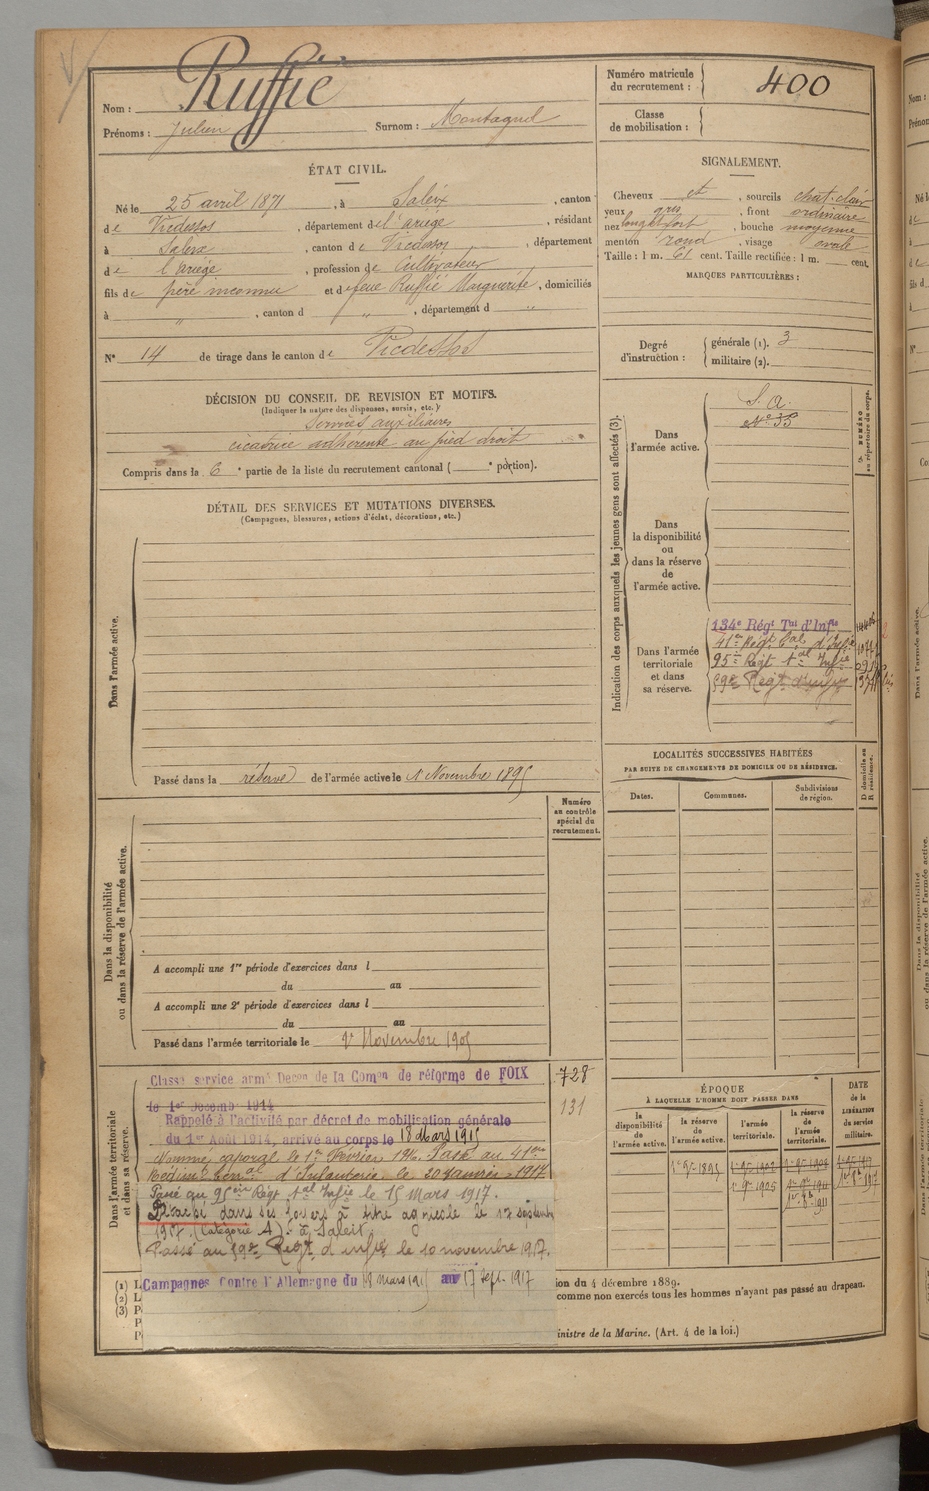 Ruffié
Nom :
Prénoms : Julien Surnom : Montagnol
Numéro matricule du recrutement : 400
Classe de mobilisation :
ÉTAT CIVIL.
Né le 25 avril 1871, à Saleix, canton
de Vicdessos, département de l'Ariège, résidant
à Saleix, canton de Vicdessos, département
de l'Ariège, profession de Cultivateur
fils de père inconnu et de feue Ruffié Marguerite, domiciliés
à " , canton d " , département d "
N° 14 de tirage dans le canton de Vicdessos
SIGNALEMENT.
Cheveux et , sourcils chat. clair
yeux gris , front ordinaire
nez long et fort , bouche moyenne
menton rond , visage ovale
Taille : 1 m. 61 cent. Taille rectifiée : 1 m. cent.
MARQUES PARTICULIÈRES :
Degré d'instruction : générale (1). 3
militaire (2).
DÉCISION DU CONSEIL DE REVISION ET MOTIFS.
(Indiquer la nature des dispenses, sursis, etc.)
Services auxiliaires
cicatrice adhérente au pied droit
Compris dans la 6e partie de la liste du recrutement cantonal ( e portion).
DÉTAIL DES SERVICES ET MUTATIONS DIVERSES.
(Campagnes, blessures, actions d'éclat, décorations, etc.)
Dans l'armée active.
Passé dans la réserve de l'armée active le 1 Novembre 1895
Indication des corps auxquels les jeunes gens sont affectés (3).
NUMÉRO au répertoire du corps.
Dans l'armée active.
S. A.
N° 35
Dans la disponibilité ou dans la réserve de l'armée active.
Dans l'armée territoriale et dans sa réserve.
134e Régt Tal d'Infie
41e Régt tal d'Infie
95e Régt tal Infie
59e Régt d'infie
LOCALITÉS SUCCESSIVES HABITÉES
PAR SUITE DE CHANGEMENTS DE DOMICILE OU DE RÉSIDENCE.
Dates. Communes. Subdivisions de région. D domicile ou R résidence.
Numéro au contrôle spécial du recrutement.
Dans la disponibilité ou dans la réserve de l'armée active.
A accompli une 1re période d'exercices dans l
du au
A accompli une 2e période d'exercices dans l
du au
Passé dans l'armée territoriale le 1er Novembre 1905
Dans l'armée territoriale et dans sa réserve.
Classé service armé Décon de la Comon de réforme de FOIX 728
le 1er Décembre 1914
131
Rappelé à l'activité par décret de mobilisation générale
du 1er Août 1914, arrivé au corps le 18 Mars 1915
Nommé caporal le 1er Février 1916. Passé au 41eme
Régiment terral d'Infanterie le 20 Janvier 1917
Passé au 95eme Régt tal Infie le 15 Mars 1917.
Placé dans ses foyers à titre agricole le 17 septembre
1917. (Catégorie A). à Saleix.
Passé au 59e Régt d'infie le 10 novembre 1917.
Campagnes Contre l'Allemagne du 19 mars 1915 au 17 Sept. 1917
ÉPOQUE
À LAQUELLE L'HOMME DOIT PASSER DANS
la disponibilité de l'armée active. la réserve de l'armée active. l'armée territoriale. la réserve de l'armée territoriale. DATE de la LIBÉRATION du service militaire.
(1) L
(2) L
(3) P
P
P
ion du 4 décembre 1889.
comme non exercés tous les hommes n'ayant pas passé au drapeau.
inistre de la Marine. (Art. 4 de la loi.)